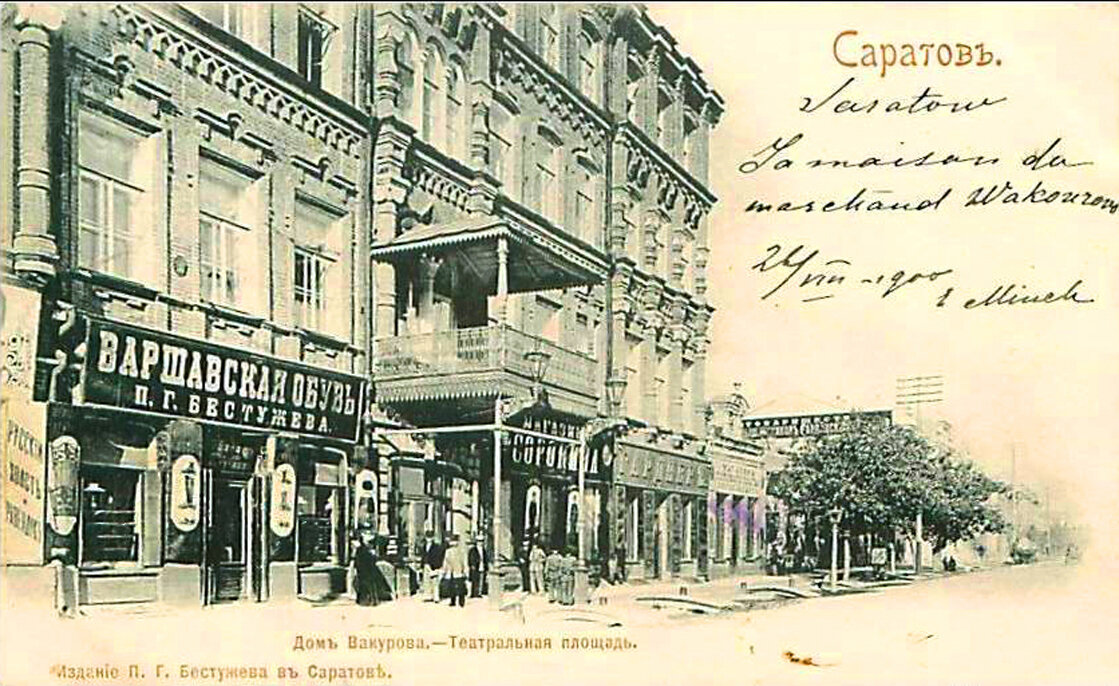 Саратовъ.
Saratow
La maison du
marchand Wakourow
1900
E Minch
ВАРШАВСКАЯ ОБУВЬ
П. Г. БЕСТУЖЕВА.
МАГАЗИН
СОРОКИНА
РУССКІЙ
Домъ Вакурова.—Театральная площадь.
Изданіе П. Г. Бестужева въ Саратовѣ.